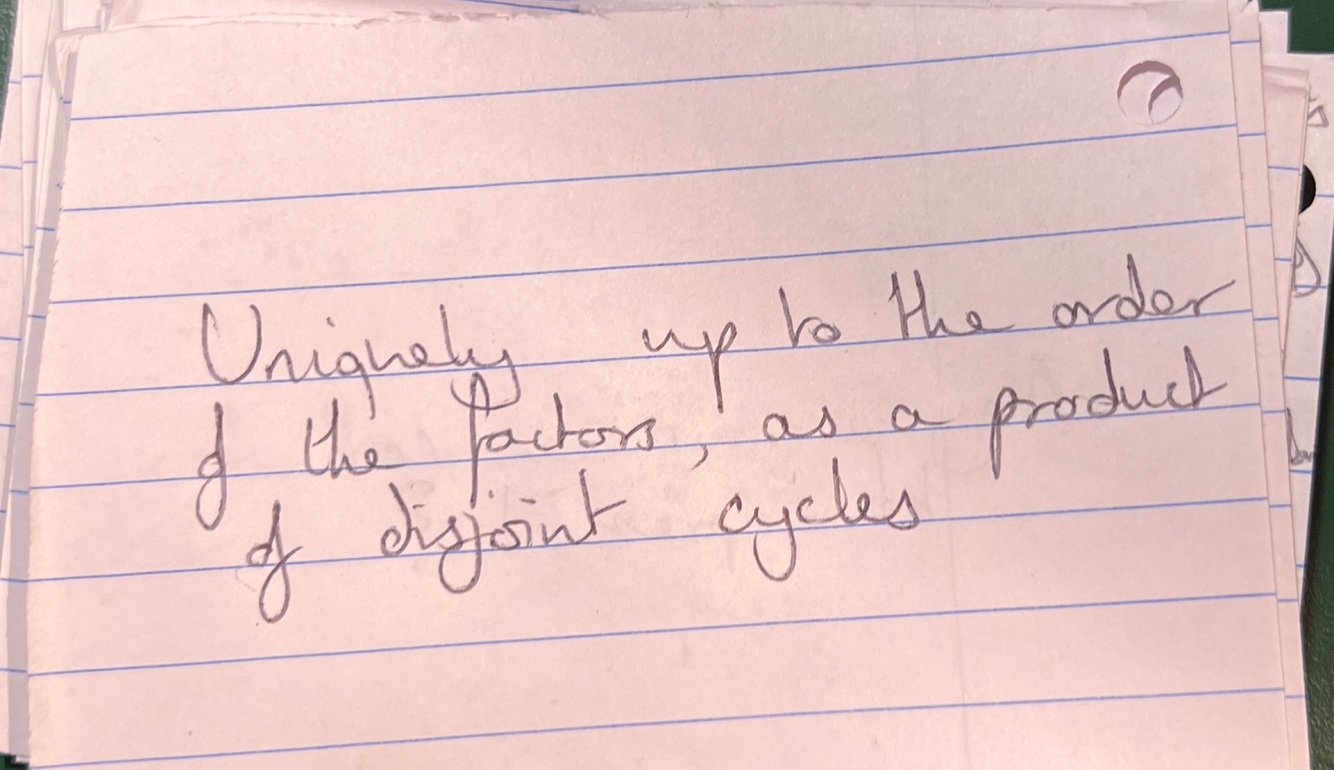 Uniquely up to the order
of the factors, as a product
of disjoint cycles